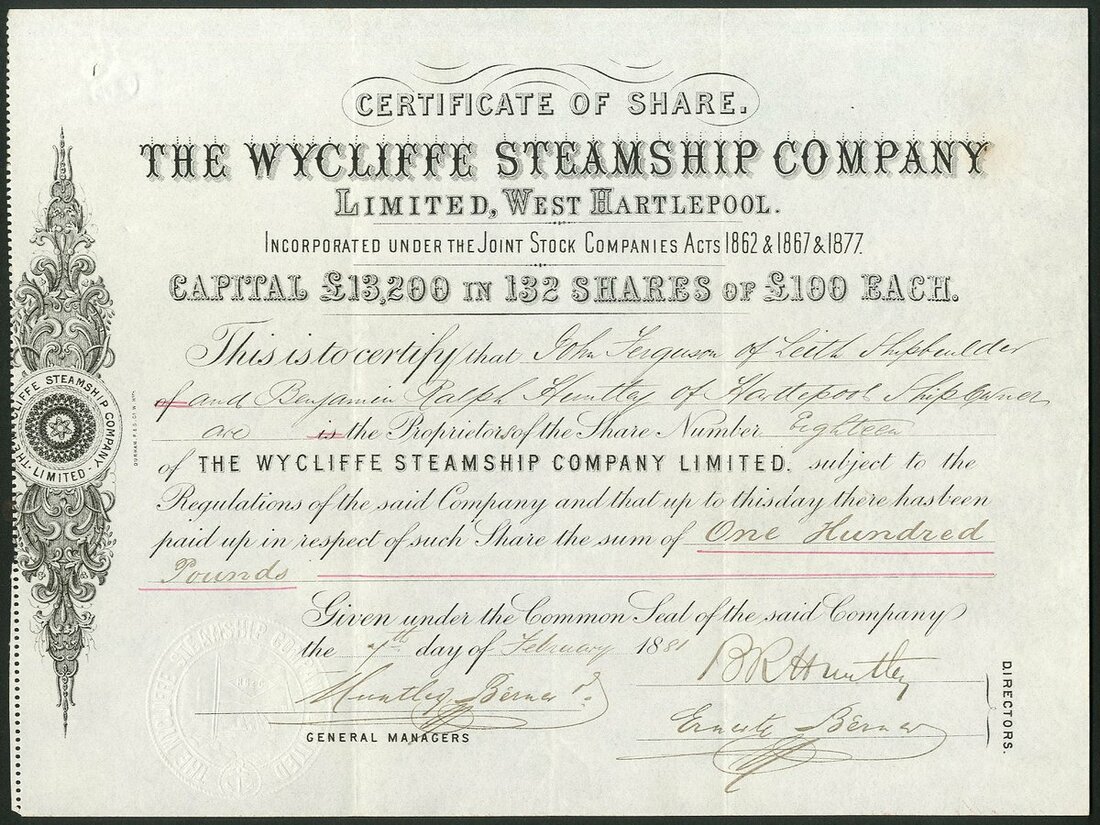 CERTIFICATE OF SHARE.
THE WYCLIFFE STEAMSHIP COMPANY
LIMITED, WEST HARTLEPOOL.
INCORPORATED UNDER THE JOINT STOCK COMPANIES ACTS 1862 & 1867 & 1877.
CAPITAL £13,200 IN 132 SHARES OF £100 EACH.
This is to certify that John Ferguson of Leith Shipbuilder
of and Benjamin Ralph Huntley of Hartlepool Ship Owner
are is the Proprietors of the Share Number Eighteen
of THE WYCLIFFE STEAMSHIP COMPANY LIMITED. subject to the
Regulations of the said Company and that up to this day there has been
paid up in respect of such Share the sum of One Hundred
Pounds
Given under the Common Seal of the said Company
the 7th day of February 1881
BR Huntley
Huntley Berner
GENERAL MANAGERS
Berner
DIRECTORS.
THE WYCLIFFE STEAMSHIP COMPANY
LIMITED
THE WYCLIFFE STEAMSHIP COMPANY LIMITED